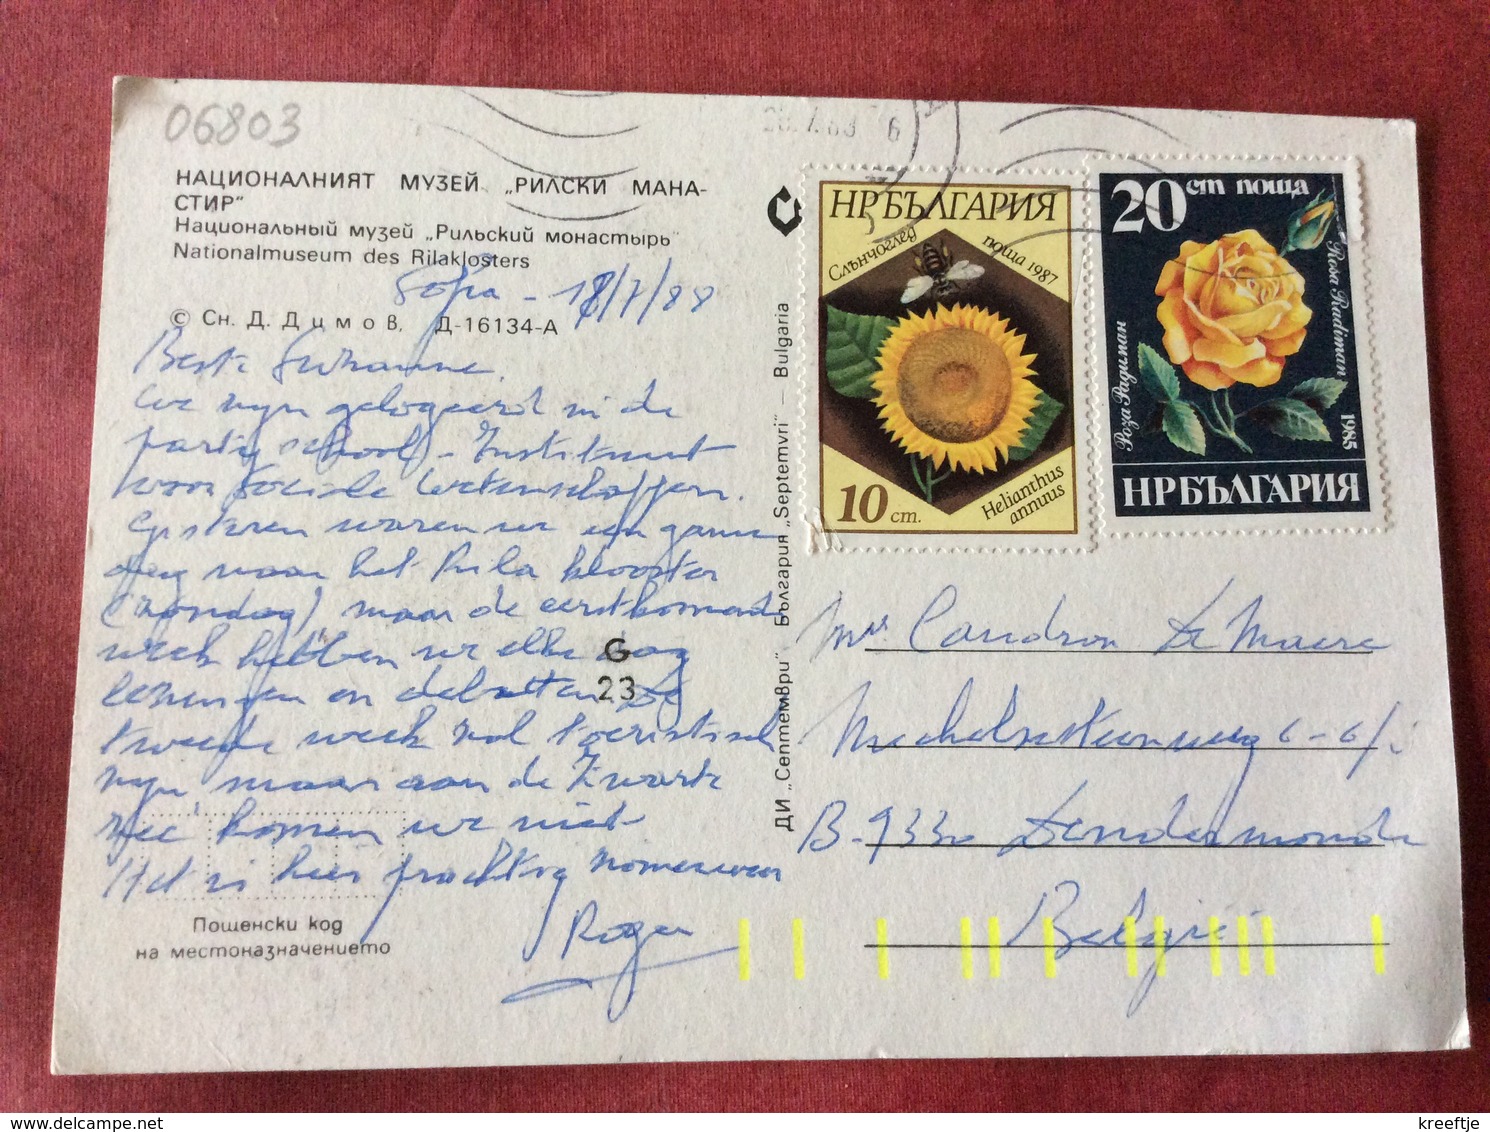 06803
НАЦИОНАЛНИЯТ МУЗЕЙ „РИЛСКИ МАНА-
СТИР"
Национальный музей „Рильский монастырь"
Nationalmuseum des Rilaklosters
Sofia - 18/7/88
© Сн. Д. Димов, Д-16134-А
Beste Suzanne,
We zijn gelogeerd in de
partyschool - Instituut
voor Sociale Wetenschappen.
Gisteren waren we een ganse
dag naar het Rila klooster
(zondag) maar de eerstkomende
week hebben we elke dag
lezingen en debatten. De
tweede week zal toeristisch
zijn maar aan de Zwarte
Zee komen we niet
Het is hier prachtig zomerweer
Roger
G
23
Пощенски код
на местоназначението
ДИ „Септември" България „Septemvri" – Bulgaria
НРБЪЛГАРИЯ
Слънчоглед
поща 1987
10 ст.
Helianthus
annuus
20 ст поща
Роза Радиман
Rosa Radiman
1985
НРБЪЛГАРИЯ
De Maere
6-6/
B-9330 Dendermonde
België
kreeftje